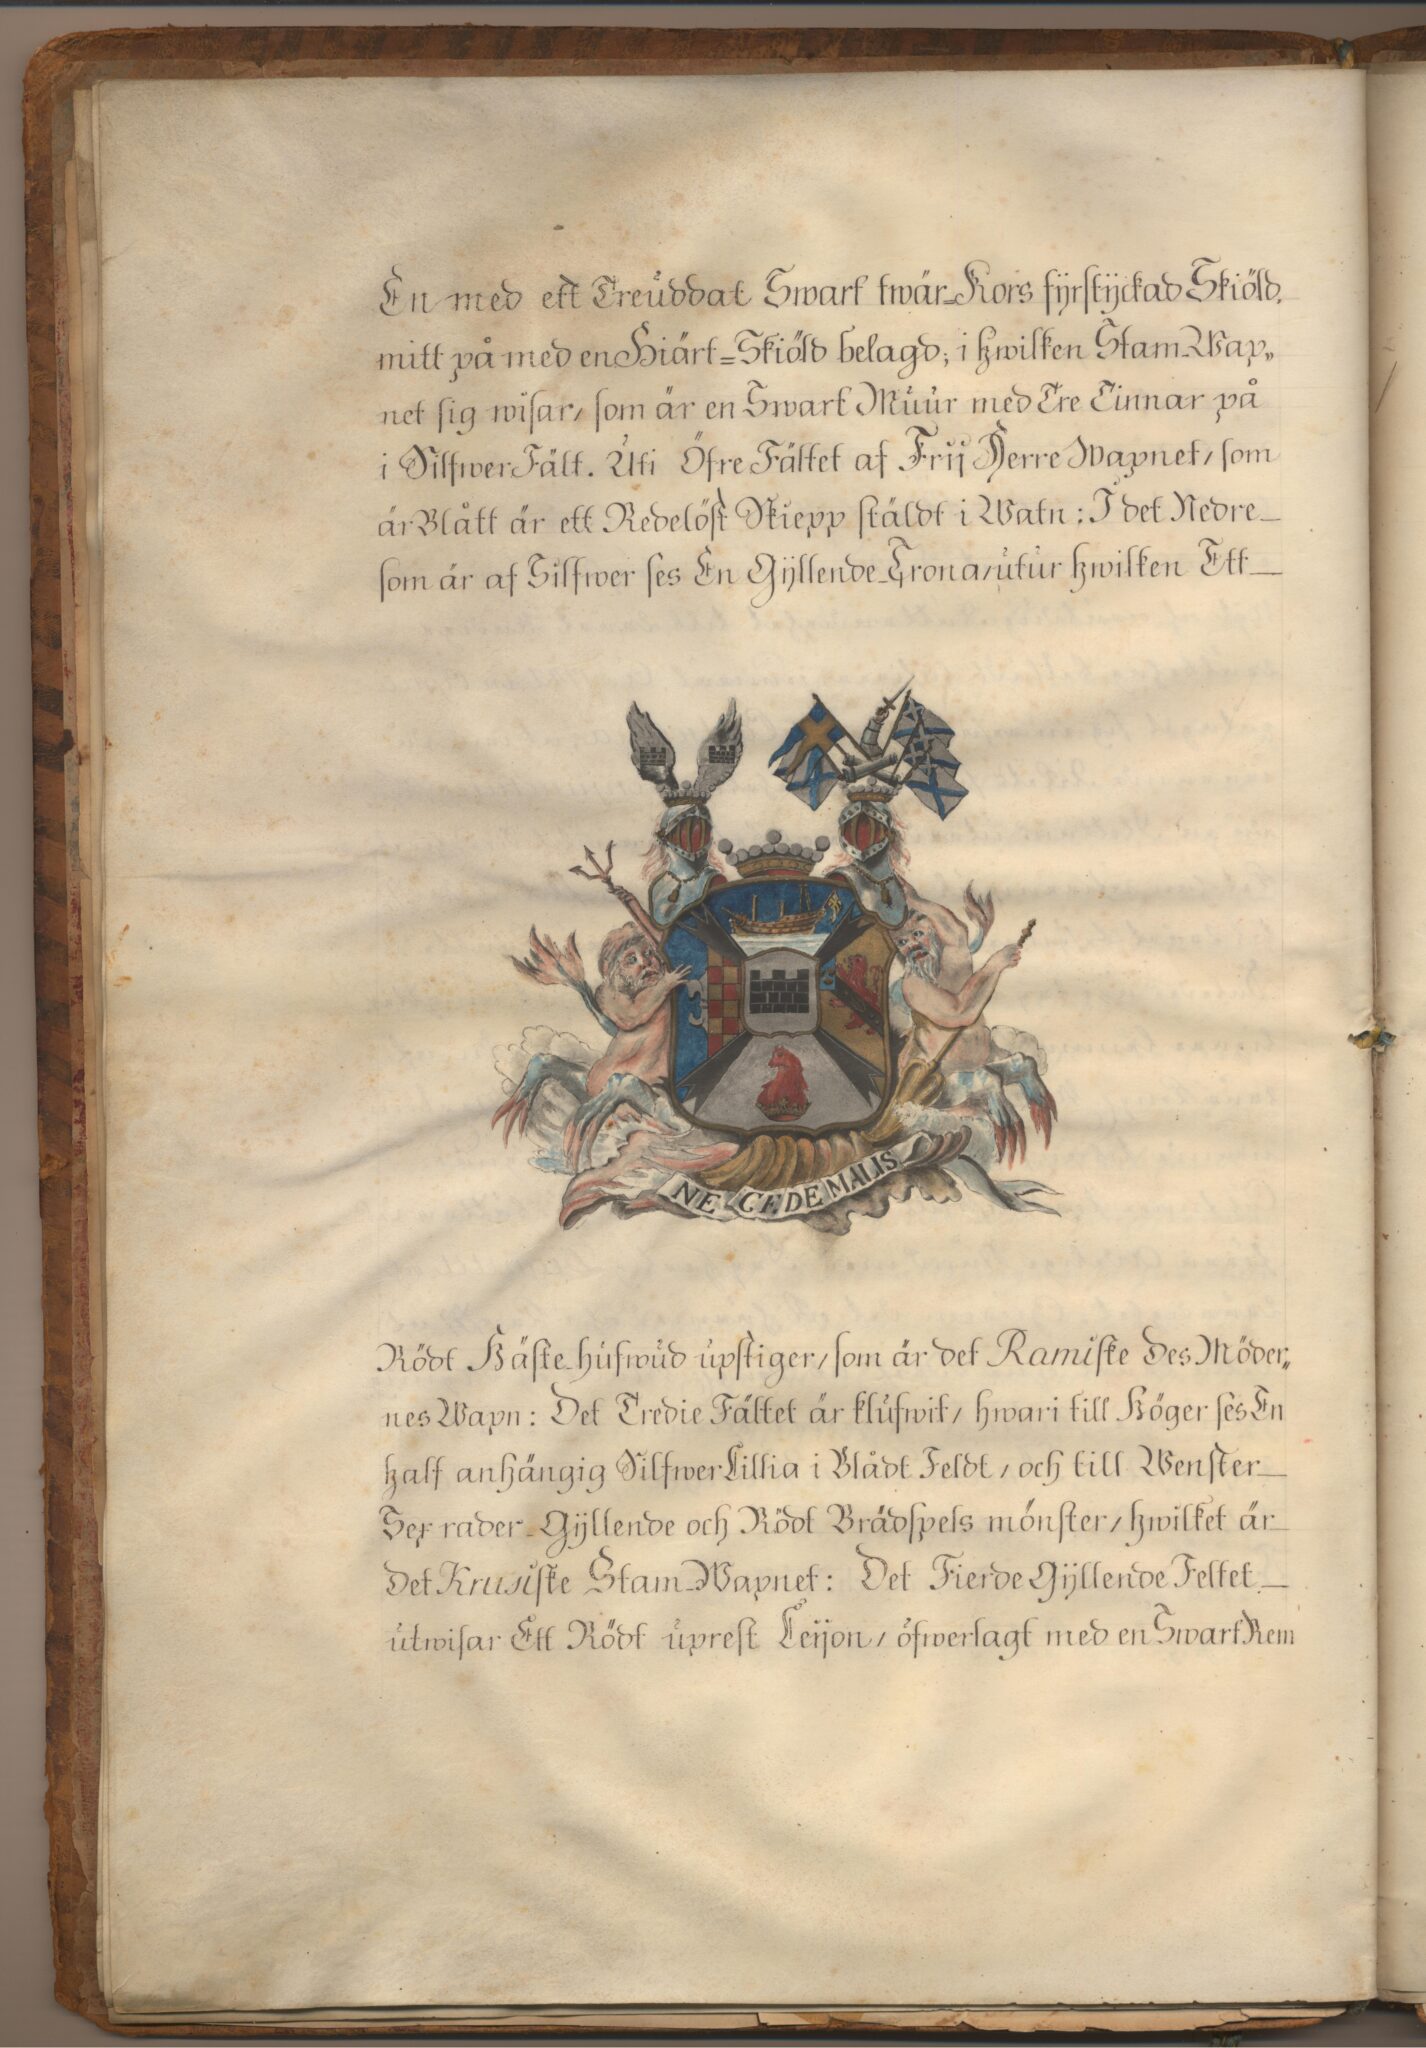 En med ett Treuddat Swart twär-Kors fyrstyckad Skiöld,
mitt på med en Hiärt=Skiöld belagd; i hwilken Stam-Wap„
net sig wisar, som är en Swart Muur med Tre Tinnar på
i Silfwer Fält. Uti Öfre Fältet af Frij Herre Wapnet, som
är Blått är ett Redelöst Skiepp stäldt i Watn: I det Nedre
som är af Silfwer ses En Gyllende Crona, utur hwilken Ett
NE CEDE MALIS
Rödt Häste hufwud upstiger, som är det Ramiske Des Möder„
nes Wapn: Det Tredie Fältet är klufwit, hwari till Höger ses En
half anhängig Silfwer Lillia i Blådt Feldt, och till Wenster
Sex rader Gyllende och Rödt Brädspels mönster, hwilket är
det Krusiske Stam-Wapnet: Det Fierde Gyllende Feltet
utwisar Ett Rödt uprest Leijon, öfwerlagt med en Swart Rem